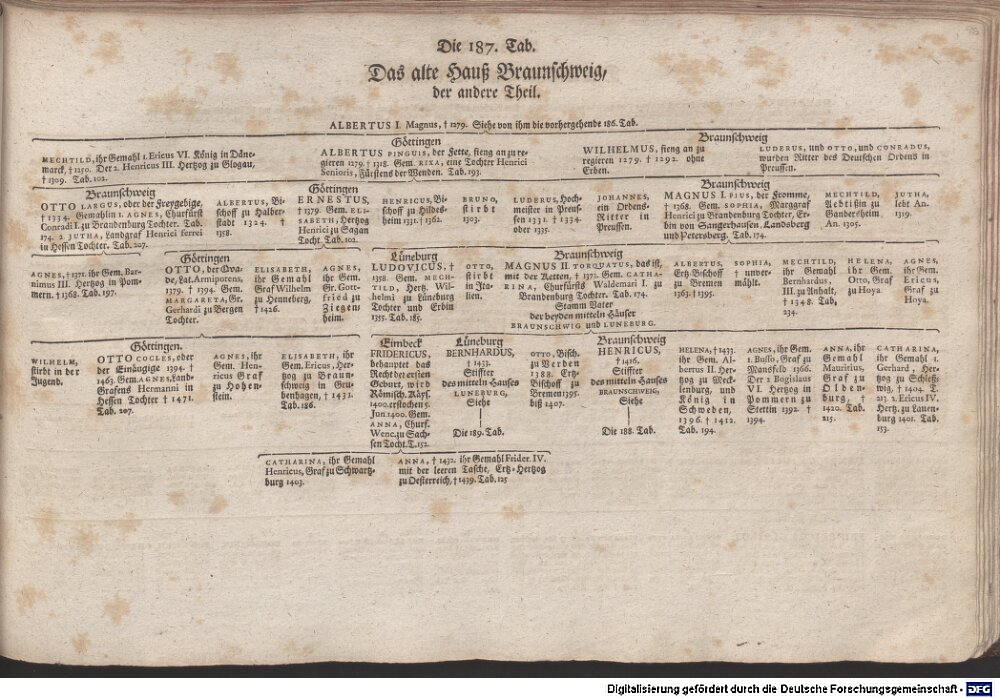 Die 187. Tab.
Das alte Hauß Braunschweig,
der andere Theil.
ALBERTUS I. Magnus, † 1279. Siehe von ihm die vorhergehende 186. Tab.
MECHTILD, ihr Gemahl 1. Ericus VI. König in Däne-
marck, † 1250. Der 2. Henricus III. Hertzog zu Glogau,
† 1309. Tab. 102.
Göttingen
ALBERTUS PINGUIS, der Fette, fieng an zu re-
gieren 1279. † 1318. Gem. RIXA, eine Tochter Henrici
Senioris, Fürstens der Wenden. Tab. 193.
Braunschweig
WILHELMUS, fieng an zu
regieren 1279. † 1292. ohne
Erben.
LUDERUS, und OTTO, und CONRADUS,
wurden Ritter des Deutschen Ordens in
Preussen.
Braunschweig
OTTO LARGUS, oder der Freygebige,
† 1334. Gemahlin 1. AGNES, Churfürst
Conradi I. zu Brandenburg Tochter. Tab.
174. 2. JUTHA, Landgraf Henrici ferrei
in Hessen Tochter. Tab. 207.
ALBERTUS, Bi-
schoff zu Halber-
stadt 1324. †
1358.
Göttingen
ERNESTUS,
† 1379. Gem. ELI-
SABETH, Hertzog
Henrici zu Sagan
Tocht. Tab. 102.
HENRICUS, Bi-
schoff zu Hildes-
heim 1331. † 1362.
BRUNO,
stirbt
1303.
LUDERUS, Hoch-
meister in Preus-
sen 1331. † 1334.
oder 1335.
JOHANNES,
ein Ordens-
Ritter in
Preussen.
Braunschweig
MAGNUS I. PIUS, der Fromme,
† 1368. Gem. SOPHIA, Marggraf
Henrici zu Brandenburg Tochter, Er-
bin von Sangerhausen, Landsberg
und Petersberg. Tab. 174.
MECHTILD,
Aebtißin zu
Gandersheim
An. 1305.
JUTHA,
lebt An.
1319.
AGNES, † 1371. ihr Gem. Bar-
nimus III. Hertzog in Pom-
mern. † 1368. Tab. 197.
Göttingen
OTTO, der Qva-
de, Lat. Armipotens,
1379. † 1394. Gem.
MARGARETA, Gr.
Gerhardi zu Bergen
Tochter.
ELISABETH,
ihr Gemahl
Graf Wilhelm
zu Henneberg,
† 1426.
AGNES,
ihr Gem.
Gr. Gott-
fried zu
Ziegen-
heim.
Lüneburg
LUDOVICUS, †
1358. Gem. MECH-
TILD, Hertz. Wil-
helmi zu Lüneburg
Tochter und Erbin
1355. Tab. 185.
OTTO,
stirbt
in Ita-
lien.
Braunschweig
MAGNUS II. TORQUATUS, das ist,
mit der Ketten, † 1372. Gem. CATHA-
RINA, Churfürsts Waldemari I. zu
Brandenburg Tochter. Tab. 174.
Stamm Vater
der beyden mitteln Häuser
BRAUNSCHWIG und LUNEBURG.
ALBERTUS,
Ertz-Bischoff
zu Bremen
1363. † 1395.
SOPHIA,
† unver-
mählt.
MECHTILD,
ihr Gemahl
Bernhardus,
III. zu Anhalt,
† 1348. Tab,
234.
HELENA,
ihr Gem.
Otto, Graf
zu Hoya.
AGNES,
ihr Gem.
Ericus,
Graf zu
Hoya.
WILHELM,
stirbt in der
Jugend.
Göttingen.
OTTO COCLES, oder
der Einäugige 1394. †
1463. Gem. AGNES, Land-
Grafens Hermanni in
Hessen Tochter † 1471.
Tab. 207.
AGNES, ihr
Gem. Hen-
ricus Graf
zu Hohen-
stein.
ELISABETH, ihr
Gem. Ericus, Her-
tzog zu Braun-
schweig in Gru-
benhagen, † 1431.
Tab. 186.
Eimbeck
FRIDERICUS,
behauptet das
Recht der ersten
Geburt, wird
Römisch. Käys.
1400. erstochen 5.
Jun. 1400. Gem.
ANNA, Churf.
Wenc. zu Sach-
sen Tocht. T. 152.
Lüneburg
BERNHARDUS,
† 1433.
Stiffter
des mitteln Hauses
LUNEBURG,
Siehe
Die 189. Tab.
OTTO, Bisch.
zu Verden
1388. Ertz-
Bischoff zu
Bremen 1395.
biß 1407.
Braunschweig
HENRICUS,
† 1416.
Stiffter
des mitteln Hauses
BRAUNSCHWEIG,
Siehe
Die 188. Tab.
HELENA, † 1433.
ihr Gem. Al-
bertus II. Her-
tzog zu Meck-
lenburg, und
König in
Schweden,
1396. † 1412.
Tab. 194.
AGNES, ihr Gem.
1. Busso, Graf zu
Mansfeld 1366.
Der 2 Bogislaus
VI. Hertzog in
Pommern zu
Stettin 1392. †
1394.
ANNA, ihr
Gemahl
Mauritius,
Graf zu
Olden-
burg, †
1420. Tab.
215.
CATHARINA,
ihr Gemahl 1.
Gerhard, Her-
tzog zu Schleß-
wig, † 1404. T.
213. 2. Ericus IV.
Hertz. zu Lauen-
burg 1401. Tab.
153.
CATHARINA, ihr Gemahl
Henricus, Graf zu Schwartz-
burg 1403.
ANNA, † 1432. ihr Gemahl Frider. IV.
mit der leeren Tasche, Ertz-Hertzog
zu Oesterreich, † 1439. Tab. 125
Digitalisierung gefördert durch die Deutsche Forschungsgemeinschaft - DFG